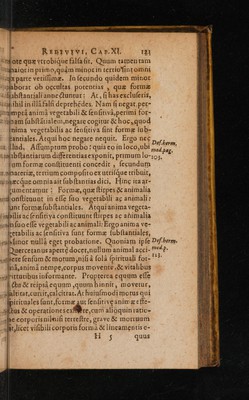 REDIVIVI, CAP. XI. 121
nte quę vtrobique falsa sit. Quum tamen tam
maior in primo, quàm minor in tertio sint omni
x parte verissimæ. In secundo quidem minor
aborat ob occultas potentias, quæ formæ
ubstantiali annectuntur: At, si has excluseris,
ihil in illa falsi deprehẽdes. Nam si neget, per-
emptâ animâ vegetabili & sensitiva, perimi for-
mam substantialem, negare cogitur & hoc, quod
nima vegetabilis ac sensitiva sint formæ sub-
tantiales. Atqui hoc negare nequit. Ergo nec
llud. Assumptum probo: quia eo in loco, ubi
ubstantiarum differentias exponit, primum lo-
um formæ constituenti concedit, secundum
materiæ, tertium composito ex utrisque tribuit,
ęcque omnia ait substantias dici. Hinc ita ar-
umentantur: Formæ, quæ stirpes & animalia
onstituunt in esse suo vegetabili ac animali:
unt formæ substantiales. Atqui anima vegeta-
ilis ac sensitiva constituunt stirpes ac animalia
n suo esse vegetabili ac animali: Ergo anima ve-
etabilis ac sensitiva sunt formæ substantiales,
Minor nullâ eget probatione. Quoniam ipse
Quercetanus apertè docet, nullum animal acci-
ere sensum & motum, nisi â solâ spirituali for-
mâ, animâ nempe, corpus movente, & vitalibus
virtutibus informante. Propterea equum esse
&, quum hinnit, movetur,
altitat, currit, calcitrat. At hujusmodi motus qui
pirituales sunt, formæ aut sensitivę animæ effe-
ctus & operationes
e corporis nihil sit terrestre, grave & mortuum
it, licet visibili corporis formâ & lineamentis e-
H 5 quus
Def. herm.
med. pag.
103.
Def. herm.
med. p.
113.